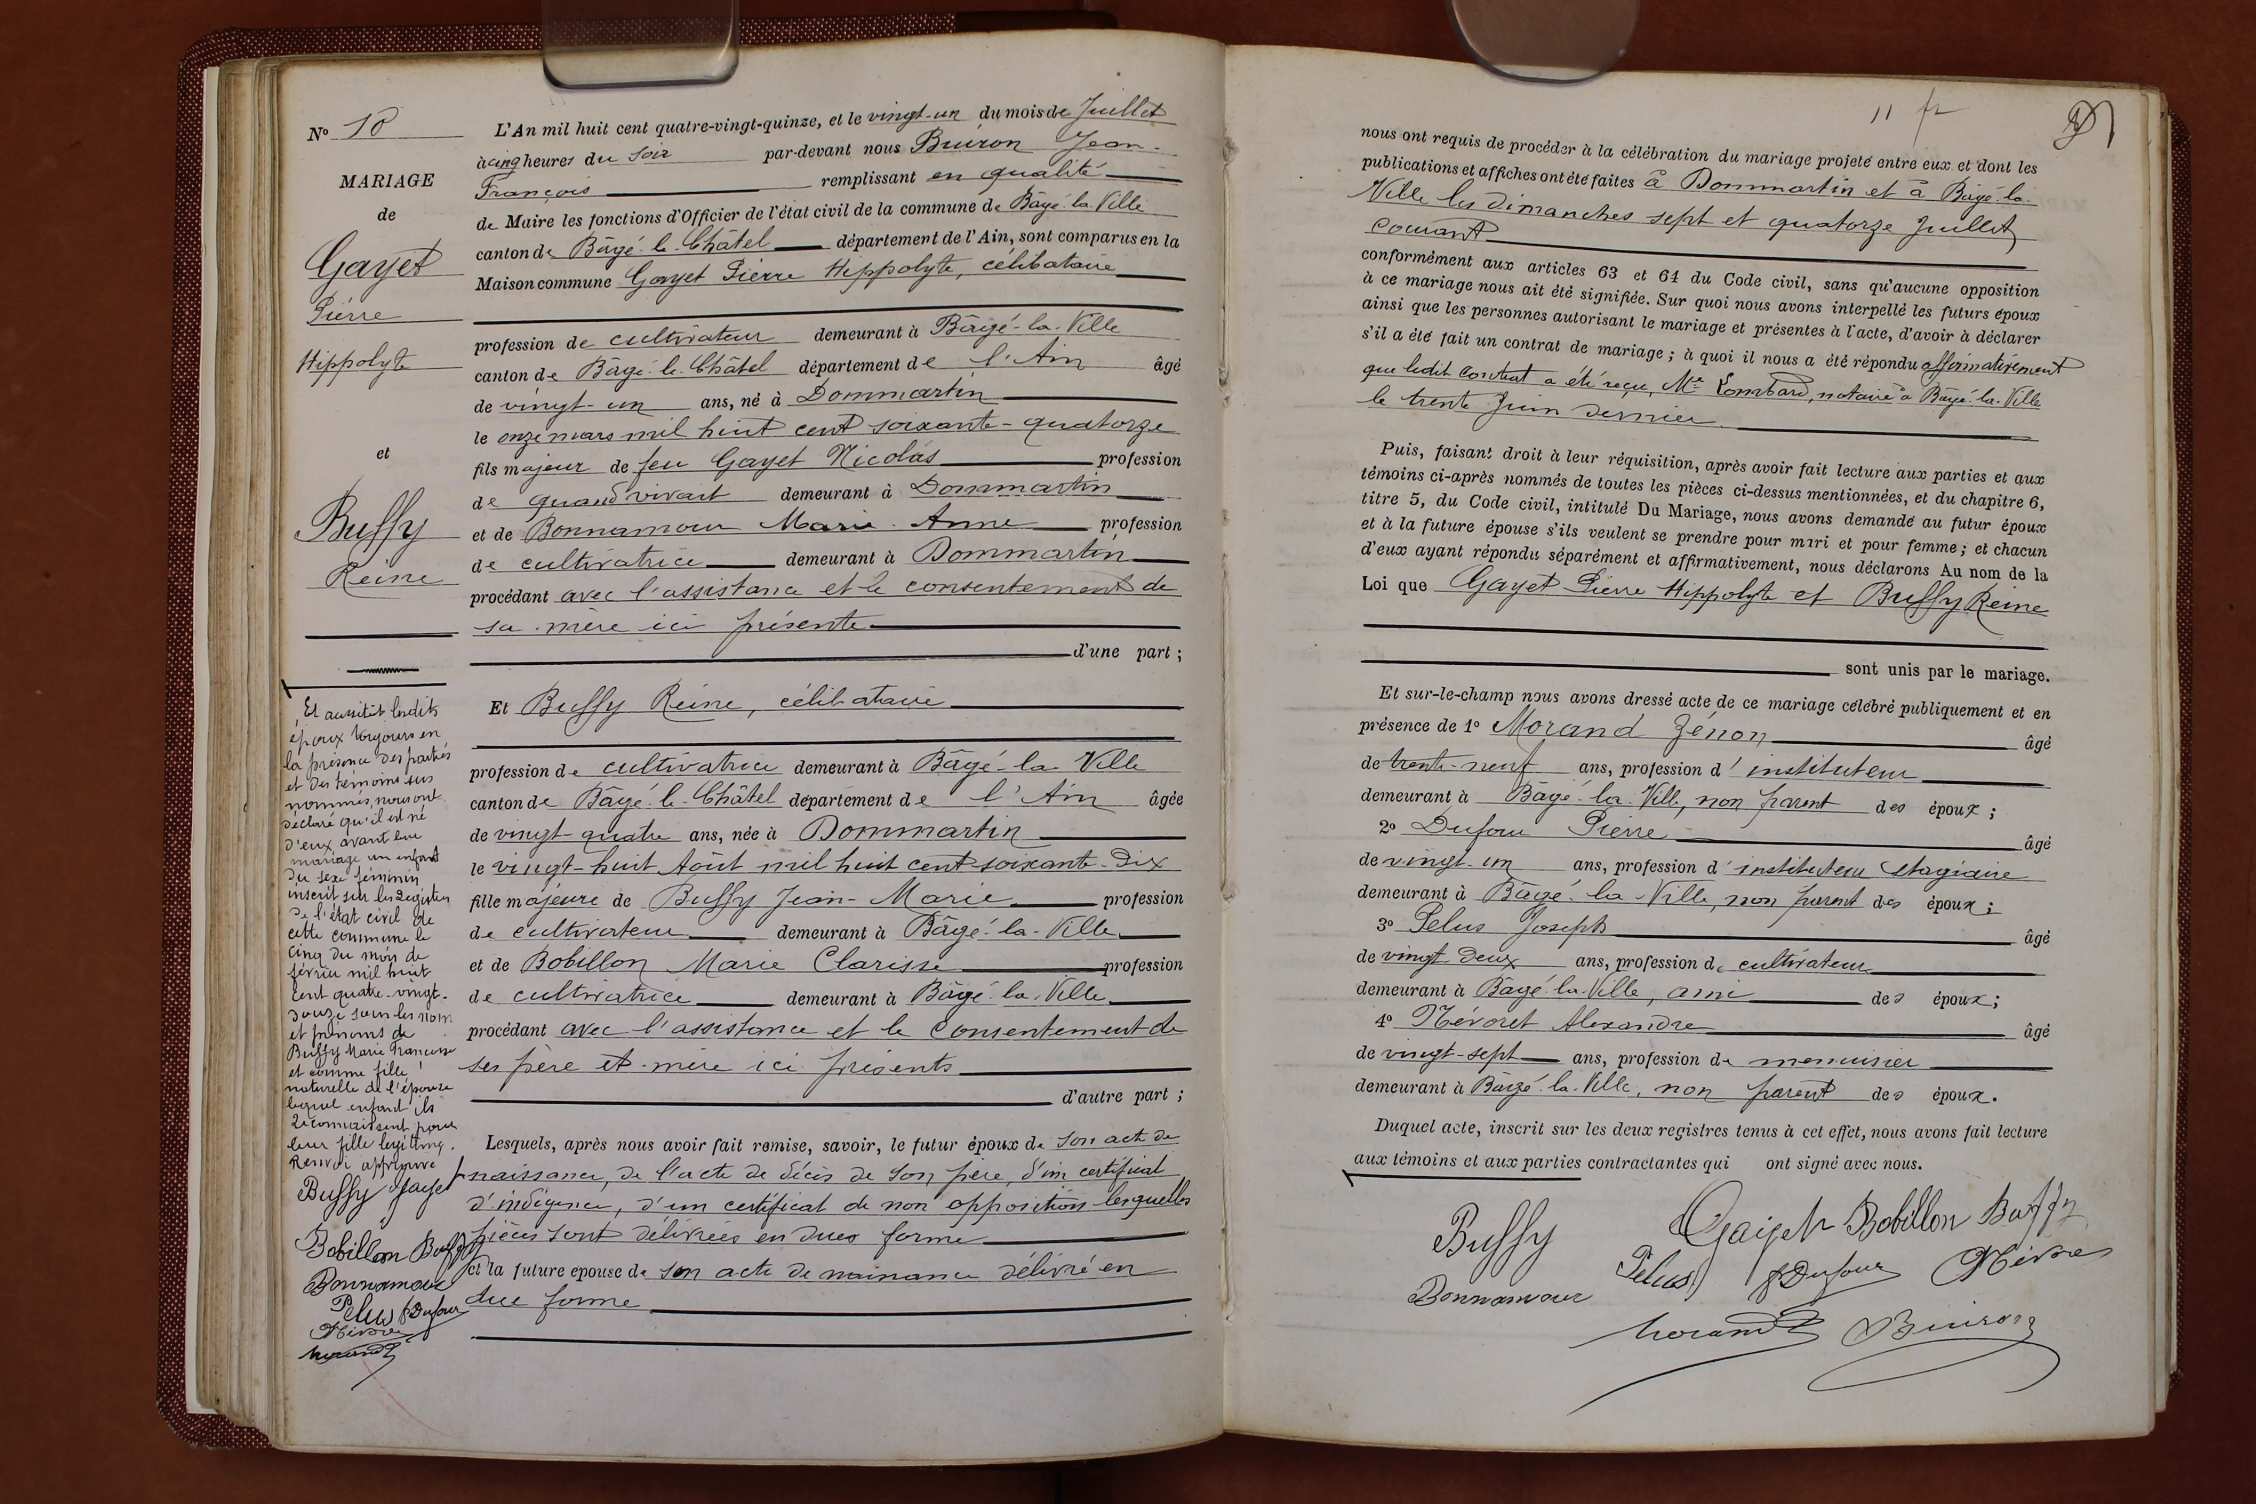 N° 10
MARIAGE
de
Gayet
Pierre
Hippolyte
et
Buffy
Reine
Et aussitôt lesdits
époux toujours en
la présence des parties
et des témoins sus
nommés, nous ont
déclaré qu'il est né
d'eux avant leur
mariage un enfant
du sexe féminin
inscrit sur les registres
de l'état civil de
cette commune le
cinq du mois de
février mil huit
cent quatre-vingt-
douze sous les nom
et prénoms de
Buffy Marie Françoise
et comme fille
naturelle de l'épouse
lequel enfant ils
reconnaissent pour
leur fille légitime.
Renvoi approuvé
Buffy Gayet
Bobillon Buffy
Bonnamour
Pelus Dufour
Névoret
Morand
L'An mil huit cent quatre-vingt-quinze, et le vingt-un du mois de Juillet
à cinq heures du soir par-devant nous Buiron Jean-
François remplissant en qualité
de Maire les fonctions d'Officier de l'état civil de la commune de Bâgé-la-Ville
canton de Bâgé-le-Châtel département de l'Ain, sont comparus en la
Maison commune Gayet Pierre Hippolyte, célibataire
profession de cultivateur demeurant à Bâgé-la-Ville
canton de Bâgé-le-Châtel département de l'Ain âgé
de vingt-un ans, né à Dommartin
le onze mars mil huit cent soixante-quatorze
fils majeur de feu Gayet Nicolas profession
de quand vivait demeurant à Dommartin
et de Bonnamour Marie-Anne profession
de cultivatrice demeurant à Dommartin
procédant avec l'assistance et le consentement de
sa mère ici présente
d'une part ;
Et Buffy Reine, célibataire
profession de cultivatrice demeurant à Bâgé-la-Ville
canton de Bâgé-le-Châtel département de l'Ain âgée
de vingt-quatre ans, née à Dommartin
le vingt-huit Août mil huit cent soixante-dix
fille majeure de Buffy Jean-Marie profession
de cultivateur demeurant à Bâgé-la-Ville
et de Bobillon Marie Clarisse profession
de cultivatrice demeurant à Bâgé-la-Ville
procédant avec l'assistance et le consentement de
ses père et mère ici présents
d'autre part ;
Lesquels, après nous avoir fait remise, savoir, le futur époux de son acte de
naissance, de l'acte de décès de son père, d'un certificat
d'indigence, d'un certificat de non opposition lesquelles
pièces sont délivrées en dues forme
et la future epouse de son acte de naissance délivré en
due forme
11 fr
nous ont requis de procéder à la célébration du mariage projeté entre eux et dont les
publications et affiches ont été faites à Dommartin et à Bâgé-la-
Ville les dimanches sept et quatorze Juillet
courant
conformément aux articles 63 et 64 du Code civil, sans qu'aucune opposition
à ce mariage nous ait été signifiée. Sur quoi nous avons interpellé les futurs époux
ainsi que les personnes autorisant le mariage et présentes à l'acte, d'avoir à déclarer
s'il a été fait un contrat de mariage ; à quoi il nous a été répondu affirmativement
que ledit contrat a été reçu, Me Lombard, notaire à Bâgé-la-Ville
le trente Juin dernier
Puis, faisant droit à leur réquisition, après avoir fait lecture aux parties et aux
témoins ci-après nommés de toutes les pièces ci-dessus mentionnées, et du chapitre 6,
titre 5, du Code civil, intitulé Du Mariage, nous avons demandé au futur époux
et à la future épouse s'ils veulent se prendre pour mari et pour femme ; et chacun
d'eux ayant répondu séparément et affirmativement, nous déclarons Au nom de la
Loi que Gayet Pierre Hippolyte et Buffy Reine
sont unis par le mariage.
Et sur-le-champ nous avons dressé acte de ce mariage célébré publiquement et en
présence de 1° Morand Zénon âgé
de trente-neuf ans, profession d'instituteur
demeurant à Bâgé-la-Ville, non parent des époux ;
2° Dufour Pierre âgé
de vingt-un ans, profession d'instituteur stagiaire
demeurant à Bâgé-la-Ville, non parent des époux ;
3° Pelus Joseph âgé
de vingt-deux ans, profession de cultivateur
demeurant à Bâgé-la-Ville, ami des époux ;
4° Névoret Alexandre âgé
de vingt-sept ans, profession de menuisier
demeurant à Bâgé-la-Ville, non parent des époux.
Duquel acte, inscrit sur les deux registres tenus à cet effet, nous avons fait lecture
aux témoins et aux parties contractantes qui ont signé avec nous.
Buffy Gayet Bobillon Buffy
Bonnamour Pelus Dufour
Morand Buiron